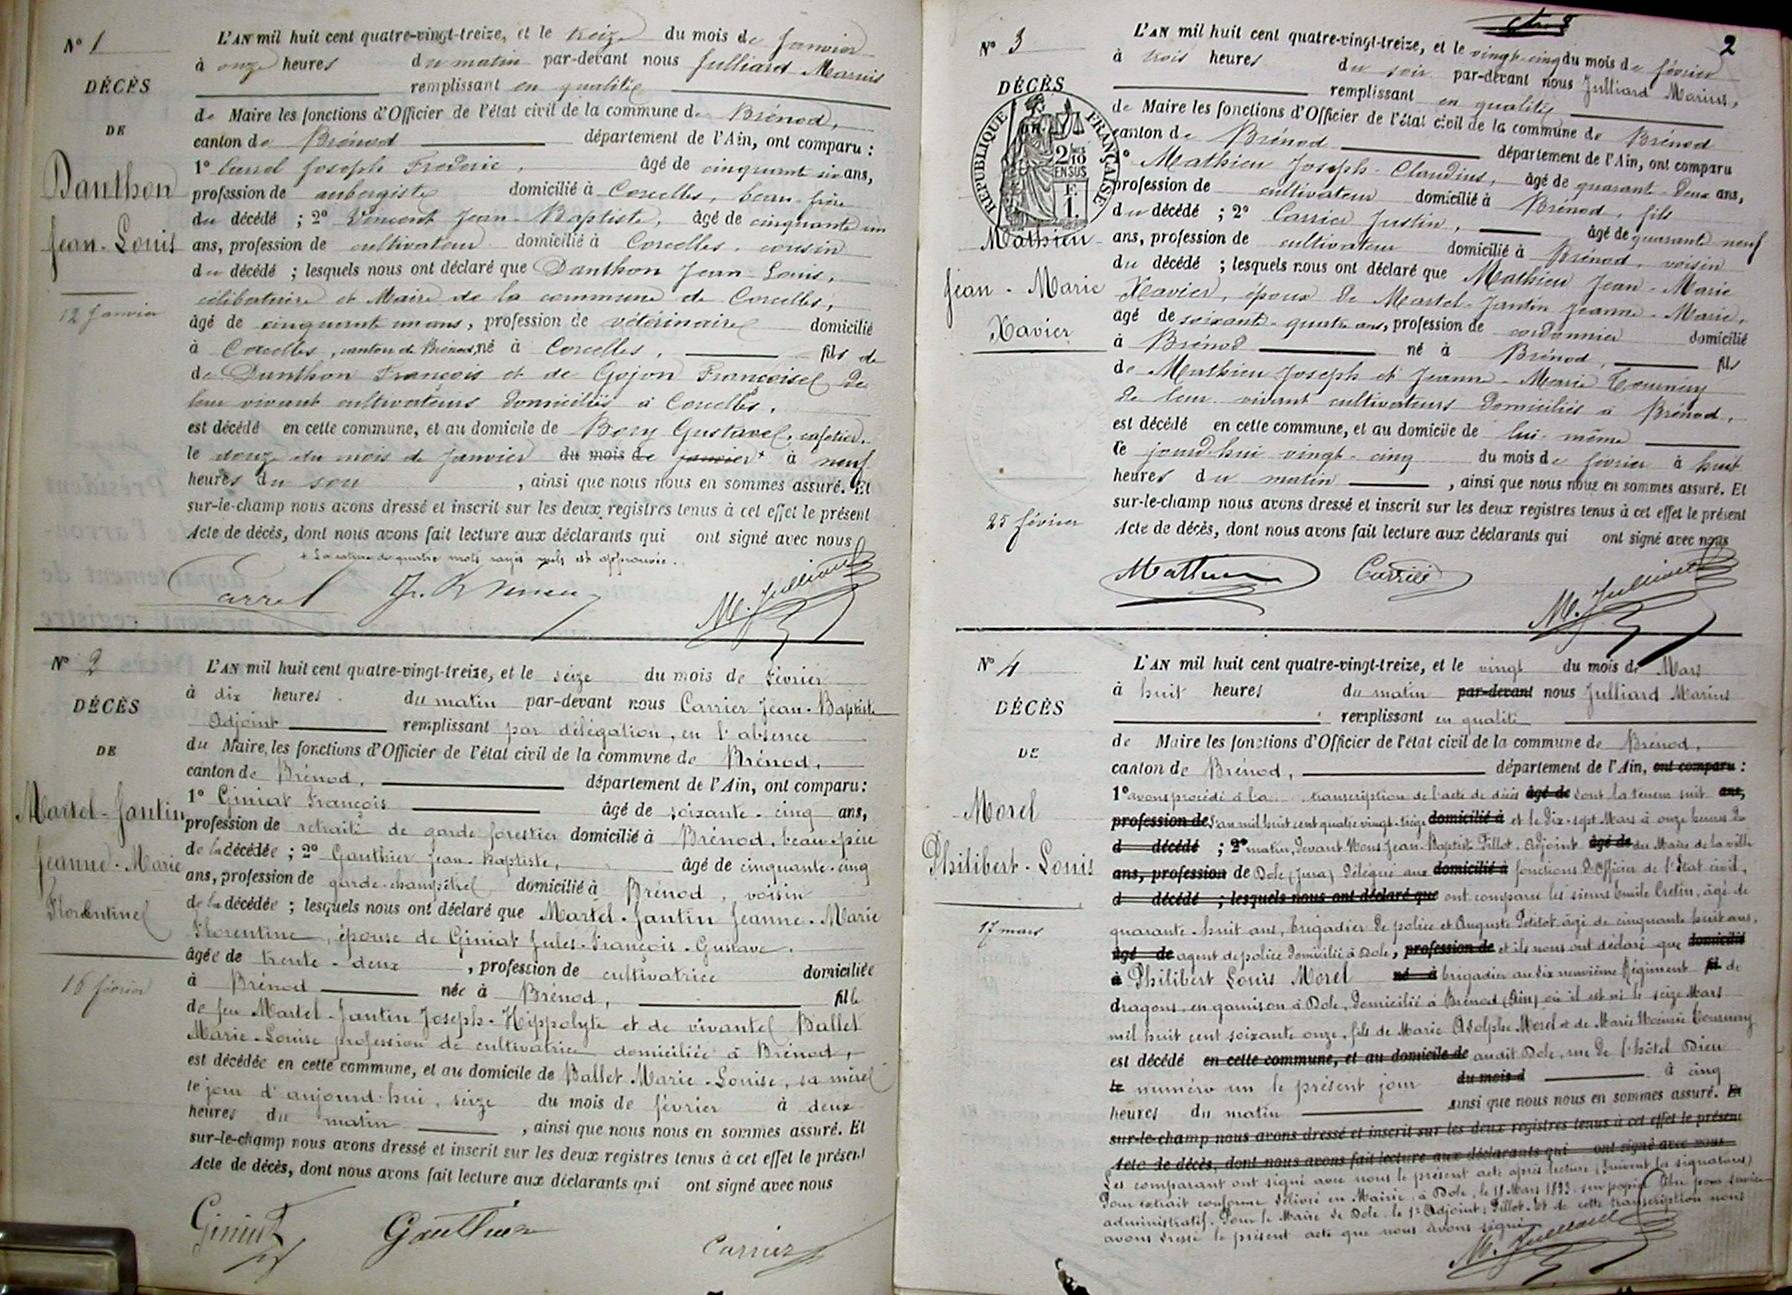 N° 1
DÉCÈS
DE
Danthon
Jean-Louis
12 Janvier
L'AN mil huit cent quatre-vingt-treize, et le treize du mois de Janvier
à onze heures du matin par-devant nous Julliard Marius
remplissant en qualité
de Maire les fonctions d'Officier de l'état civil de la commune de Brénod,
canton de Brénod département de l'Ain, ont comparu :
1° Carrel Joseph Frédéric, âgé de cinquante six ans,
profession de aubergiste domicilié à Corcelles, beau-frère
du décédé ; 2° Vincent Jean-Baptiste, âgé de cinquante un
ans, profession de cultivateur domicilié à Corcelles, cousin
du décédé ; lesquels nous ont déclaré que Danthon Jean-Louis,
célibataire et Maire de la commune de Corcelles,
âgé de cinquante un ans, profession de vétérinaire domicilié
à Corcelles, canton de Brénod, né à Corcelles, fils de
de Danthon François et de Gojon Françoise, de
leur vivant cultivateurs domiciliés à Corcelles.
est décédé en cette commune, et au domicile de Bory Gustave, cafetier.
le douze du mois de Janvier du mois de janvier à neuf
heures du soir , ainsi que nous nous en sommes assuré. Et
sur-le-champ nous avons dressé et inscrit sur les deux registres tenus à cet effet le présent
Acte de décès, dont nous avons fait lecture aux déclarants qui ont signé avec nous
+ La rature de quatre mots rayés nuls est approuvée.
Carrel M. Julliard
N° 2
DÉCÈS
DE
Martel-Jantin
Jeanne-Marie
Florentine
16 février
L'AN mil huit cent quatre-vingt-treize, et le seize du mois de Février
à dix heures du matin par-devant nous Carrier Jean-Baptiste
Adjoint remplissant par délégation, en l'absence
du Maire, les fonctions d'Officier de l'état civil de la commune de Brénod,
canton de Brénod, département de l'Ain, ont comparu :
1° Giniat François âgé de soixante-cinq ans,
profession de retraité de garde forestier domicilié à Brénod, beau-père
de la décédée ; 2° Gauthier Jean-Baptiste, âgé de cinquante-cinq
ans, profession de garde-champêtre domicilié à Brénod, voisin
de la décédée ; lesquels nous ont déclaré que Martel-Jantin Jeanne-Marie
Florentine, épouse de Giniat Jules-François-Gustave.
âgée de trente-deux , profession de cultivatrice domiciliée
à Brénod née à Brénod, fille
de feu Martel-Jantin Joseph-Hippolyte et de vivante Ballet
Marie-Louise profession de cultivatrice domiciliée à Brénod,
est décédée en cette commune, et au domicile de Ballet Marie-Louise, sa mère
le jour d'aujourd'hui, seize du mois de février à deux
heures du matin , ainsi que nous nous en sommes assuré. Et
sur-le-champ nous avons dressé et inscrit sur les deux registres tenus à cet effet le présent
Acte de décès, dont nous avons fait lecture aux déclarants qui ont signé avec nous
Giniat Gauthier Carrier
2
N° 3
DÉCÈS
RÉPUBLIQUE FRANÇAISE
2/10 EN SUS
Mathieu
Jean-Marie
Xavier
25 février
L'AN mil huit cent quatre-vingt-treize, et le vingt-cinq du mois de février
à trois heures du soir par-devant nous Julliard Marius,
remplissant en qualité
de Maire les fonctions d'Officier de l'état civil de la commune de Brénod
canton de Brénod département de l'Ain, ont comparu
1° Mathieu Joseph-Claudius, âgé de quarante-deux ans,
profession de cultivateur domicilié à Brénod, fils
du décédé ; 2° Carrier Justin, âgé de quarante neuf
ans, profession de cultivateur domicilié à Brénod, voisin
du décédé ; lesquels nous ont déclaré que Mathieu Jean-Marie
Xavier, époux de Martel-Jantin Jeanne-Marie,
âgé de soixante-quatre ans, profession de cordonnier domicilié
à Brénod né à Brénod, fils
de Mathieu Joseph et Jeanne-Marie Tournery
de leur vivant cultivateurs domiciliés à Brénod,
est décédé en cette commune, et au domicile de lui-même
le jourd'hui vingt-cinq du mois de février à huit
heures du matin , ainsi que nous nous en sommes assuré. Et
sur-le-champ nous avons dressé et inscrit sur les deux registres tenus à cet effet le présent
Acte de décès, dont nous avons fait lecture aux déclarants qui ont signé avec nous
Mathieu Carrier M. Julliard
N° 4
DÉCÈS
DE
Morel
Philibert-Louis
17 mars
L'AN mil huit cent quatre-vingt-treize, et le vingt du mois de Mars
à huit heures du matin par-devant nous Julliard Marius
remplissant en qualité
de Maire les fonctions d'Officier de l'état civil de la commune de Brénod,
canton de Brénod, département de l'Ain, ont comparu :
1° avons procédé à la transcription de l'acte de décès âgé de dont la teneur suit ans,
profession de L'an mil huit cent quatre vingt-treize domicilié à et le dix-sept Mars à onze heures du
d décédé ; 2° matin, devant Nous Jean-Baptiste Pillot, Adjoint âgé de du Maire de la ville
ans, profession de Dole (Jura) délégué aux domicilié à fonctions d'Officier de l'Etat civil,
d décédé ; lesquels nous ont déclaré que ont comparu les sieurs Emile Cretin, âgé de
quarante-huit ans, brigadier de police et Auguste Petitot âgé de cinquante huit ans,
âgé de agent de police domicilié à Dole, profession de et ils nous ont déclaré que domicilié
à Philibert Louis Morel né à brigadier au dix neuvième Régiment fil de
dragons, en garnison à Dole, domicilié à Brénod (Ain) où il est né le seize Mars
mil huit cent soixante onze, fils de Marie Adolphe Morel et de Marie Noémie Tournery
est décédé en cette commune, et au domicile de audit Dole, rue de l'hôtel Dieu
le numéro un le présent jour du mois d à cinq
heures du matin ainsi que nous nous en sommes assuré. Et
sur-le-champ nous avons dressé et inscrit sur les deux registres tenus à cet effet le présent
Acte de décès, dont nous avons fait lecture aux déclarants qui ont signé avec nous
Les comparant ont signé avec nous le présent acte après lecture (Suivent les signatures)
Pour extrait conforme délivré en Mairie, à Dole, le 18 Mars 1893 sur papier libre pour service
administratif. Pour le Maire de Dole, le 1er Adjoint : Pillot. Et de cette transcription nous
avons dressé le présent acte que nous avons signé
M. Julliard